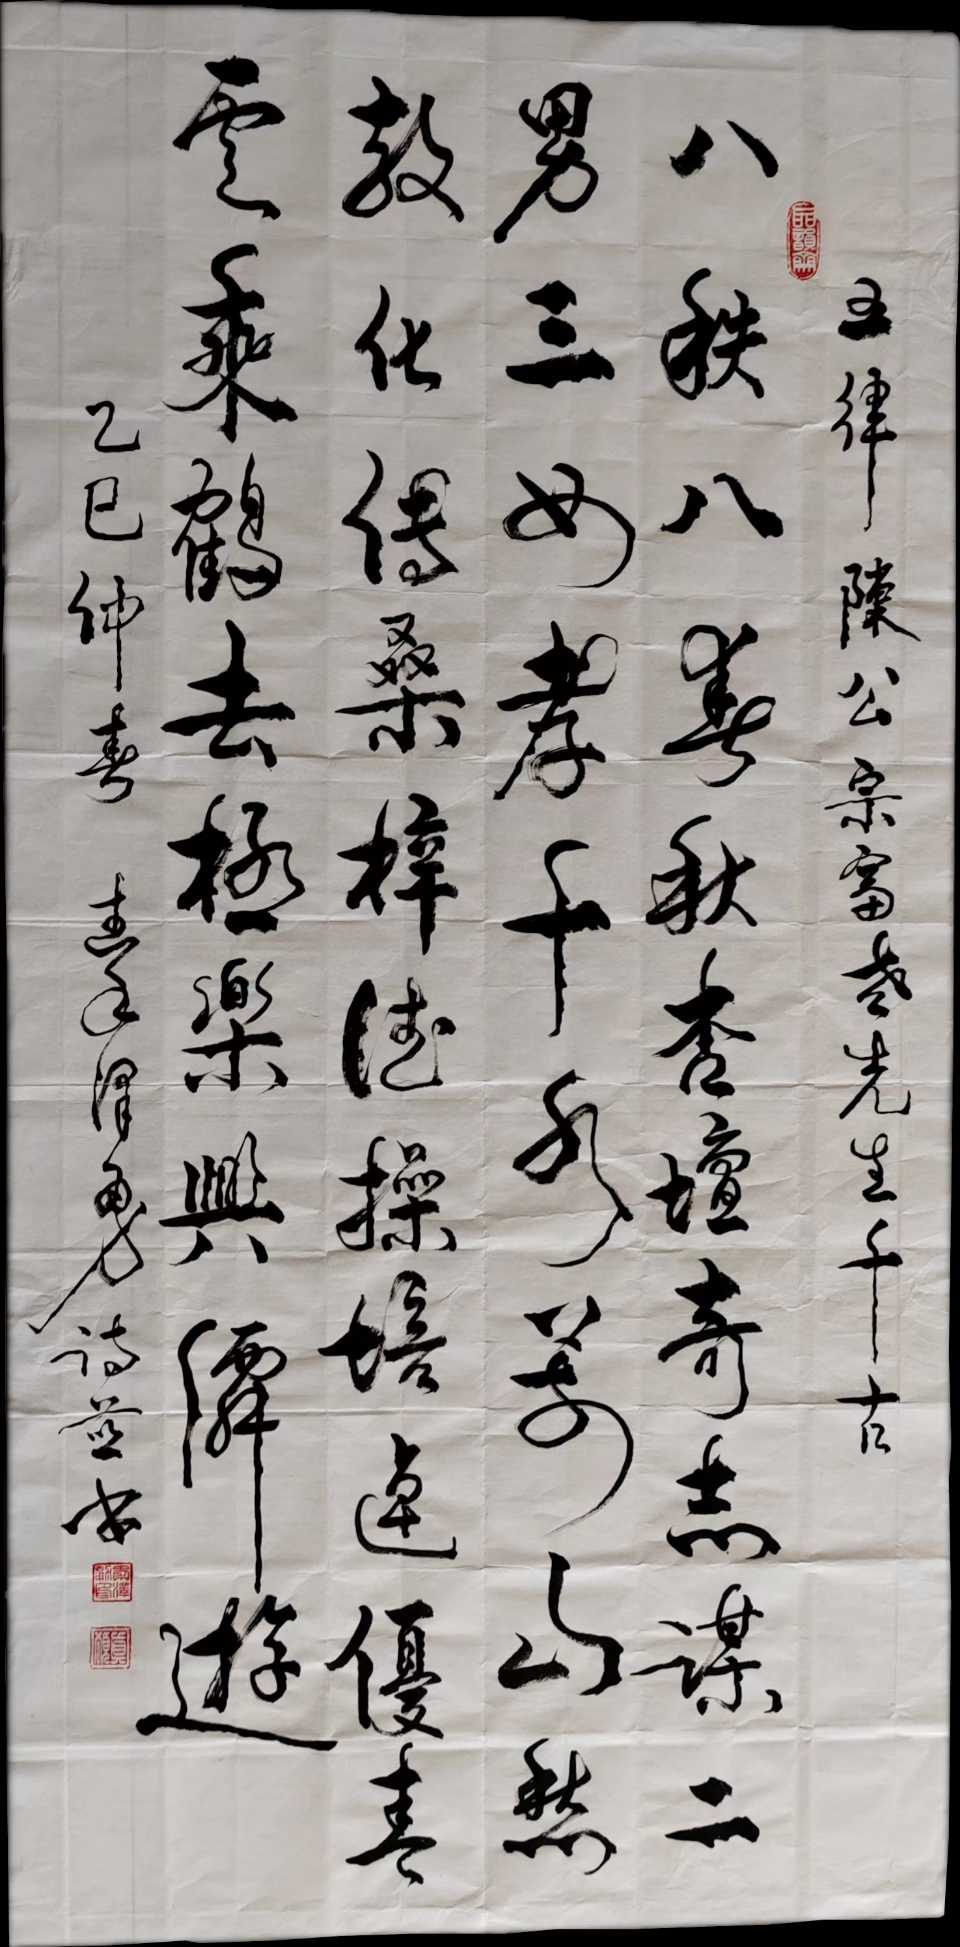 五律陳公宗富老先生千古
八秩八春秋杏壇奇志謀二
男三女孝千水萬山愁
教化傳桑梓德操培連優春
雲乘鶴去極樂與僊遊
乙巳仲春 李澤勇詩並書